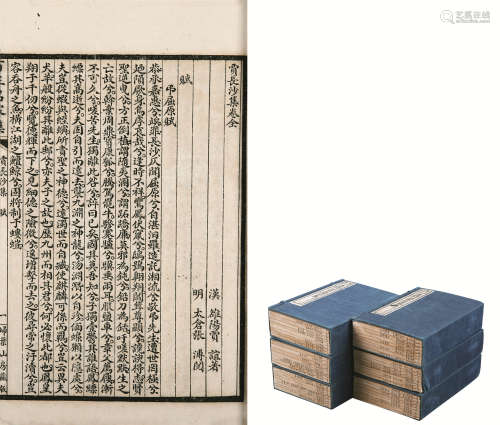 賈長沙集卷全
漢 雒陽賈 誼著
明 太倉張 溥閱
賦
弔屈原賦
恭承嘉惠兮竢罪長沙仄聞屈原兮自湛汨羅造託湘流兮敬弔先生遭世罔極兮
乃隕厥身烏虖哀哉兮逢時不祥鸞鳳伏竄兮鴟鴞翱翔闒茸尊顯兮讒諛得志賢
聖逆曳兮方正倒植謂隨夷溷兮謂跖蹻廉莫邪為鈍兮鉛刀為銛吁嗟默默生之
亡故兮斡棄周鼎寶康瓠兮騰駕罷牛驂蹇驢兮驥垂兩耳服鹽車兮章父薦屨漸
不可久兮嗟苦先生獨離此咎兮訊曰已矣國其莫吾知兮子獨壹鬱其誰語鳳縹
縹其高逝兮夫固自引而遠去襲九淵之神龍兮沕淵潛以自珍偭蟂獺以隱處兮
夫豈從蝦與蛭螾所貴聖之神德兮遠濁世而自臧使麒麟可係而羈兮豈云異夫
犬羊般紛紛其離此郵兮亦夫子之故也歷九州而相其君兮何必懷此都也鳳皇
翔于千仞兮覽德輝而下之見細德之險微兮遙增擊而去之彼尋常之汙瀆兮豈
容吞舟之魚橫江湖之鱣鯨兮固將制於螻蟻
賈長沙集 賦
一 掃葉山房藏版
艺典中国